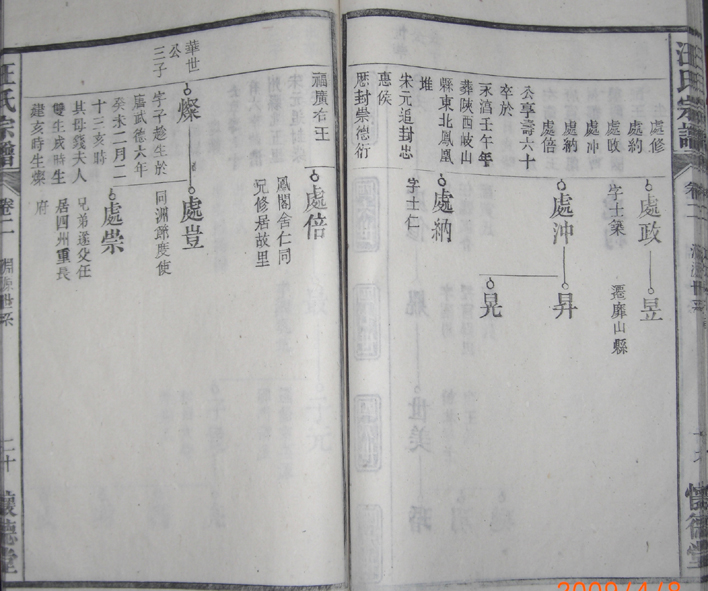 汪氏宗譜
卷二
懷德堂
處修
處約
處政
處沖
處納
處倍
公享壽六十
卒於
永淳壬午年
葬陝西岐山
縣東北鳳凰
堆
宋元追封忠
惠侯
歷封崇德衍
處政
字士
昱
遷山縣
處沖
昇
晃
處納
字士仁
福廣佑王
處倍
鳳閣舍仁同
兄修居故里
華世
公
三子
燦
字子 生於
唐武德六年
癸未二月二
十三亥時
其母錢夫人
雙生戌時生
建亥時生燦
處豈
同淵 度使
處崇
兄弟遂父任
居四州重長
府
汪氏宗譜
卷二
二十
懷德堂
2009/4/8